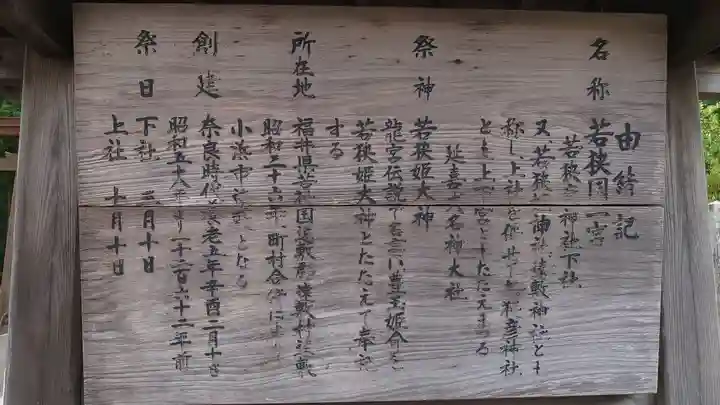 由緒記
名称 若狭国一宮
若狭彦神社下社
又、若狭姫神社遠敷神社とも
称し上社を併せて若狭彦神社
とも上下宮ともたたえまつる
祭神 若狭姫大神
延喜上 名神大社
龍宮伝説で名高い豊玉姫命を
若狭姫大神とたたえて奉祀
する
所在地 福井県若狭国遠敷郡遠敷村遠敷
昭和二十六年、町村合併により
小浜市遠敷となる
創建 奈良時代養老五年辛酉二月十日
昭和五十八年より一千二百六十二年前
祭日 下社 三月十日
上社 十月十日